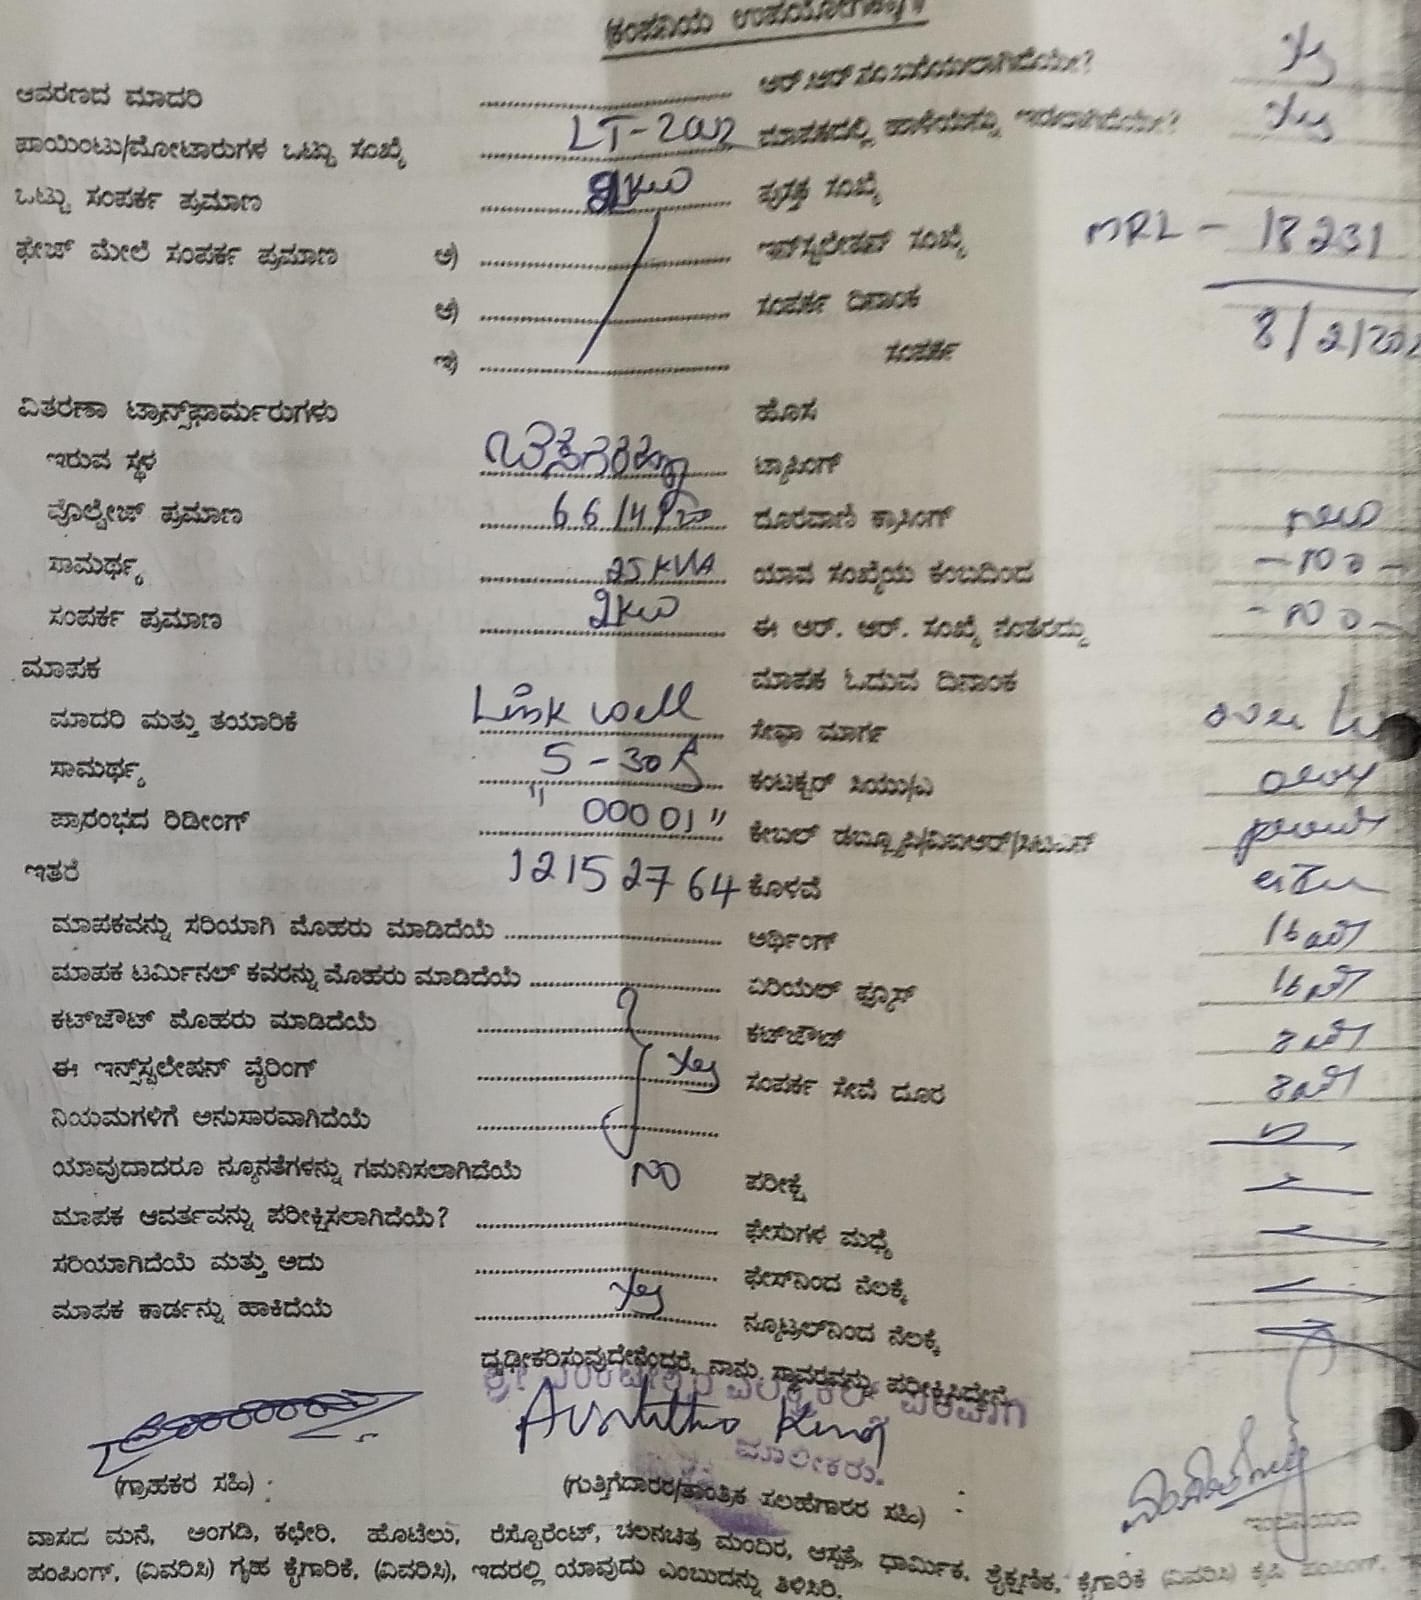 (ಕಂಪನಿಯ ಉಪಯೋಗಕ್ಕಾಗಿ)
ಆವರಣದ ಮಾದರಿ ಆರ್.ಆರ್.ಸಂ.ಬರೆಯಲಾಗಿದೆಯೇ? Yes
ಪಾಯಿಂಟು/ಮೋಟಾರುಗಳ ಒಟ್ಟು ಸಂಖ್ಯೆ LT-2 ಮಾಪಕದಲ್ಲಿ ಹಾಳೆಯನ್ನು ಇಡಲಾಗಿದೆಯೇ? Yes
ಒಟ್ಟು ಸಂಪರ್ಕ ಪ್ರಮಾಣ 2KW ಪುಸ್ತಕ ಸಂಖ್ಯೆ
ಫೇಜ್ ಮೇಲೆ ಸಂಪರ್ಕ ಪ್ರಮಾಣ ಅ) ಇನ್‌ಸ್ಟಲೇಷನ್ ಸಂಖ್ಯೆ MRL - 18231
ಆ) ಸಂಪರ್ಕ ದಿನಾಂಕ 8/2/202
ಇ) ಸಂಪರ್ಕ
ವಿತರಣಾ ಟ್ರಾನ್ಸ್‌ಫಾರ್ಮರುಗಳು ಹೊಸ
ಇರುವ ಸ್ಥಳ ಟ್ಯಾಪಿಂಗ್
ವೊಲ್ಟೇಜ್ ಪ್ರಮಾಣ ದೂರವಾಣಿ ಕ್ರಾಸಿಂಗ್ new
ಸಾಮರ್ಥ್ಯ 25 KVA ಯಾವ ಸಂಖ್ಯೆಯ ಕಂಬದಿಂದ - no -
ಸಂಪರ್ಕ ಪ್ರಮಾಣ 2KW ಈ ಆರ್. ಆರ್. ಸಂಖ್ಯೆ ನಂತರದ್ದು - no -
ಮಾಪಕ ಮಾಪಕ ಓದುವ ದಿನಾಂಕ
ಮಾದರಿ ಮತ್ತು ತಯಾರಿಕೆ Link well ಸೇವಾ ಮಾರ್ಗ
ಸಾಮರ್ಥ್ಯ 5 - 30 A ಕಂಟಕ್ಟರ್ ಸಿಯು/ಎ
ಪ್ರಾರಂಭದ ರಿಡೀಂಗ್ "00001" ಕೇಬಲ್ ಡಬ್ಲ್ಯೂಪಿ/ವಿಐಆರ್/ಸಿಟಿಎಸ್
ಇತರೆ 12152764 ಕೊಳವೆ
ಮಾಪಕವನ್ನು ಸರಿಯಾಗಿ ಮೊಹರು ಮಾಡಿದೆಯೆ ಅರ್ಥಿಂಗ್
ಮಾಪಕ ಟರ್ಮಿನಲ್ ಕವರನ್ನು ಮೊಹರು ಮಾಡಿದೆಯೆ ಏರಿಯಲ್ ಫ್ಯೂಸ್
ಕಟ್‌ಔಟ್ ಮೊಹರು ಮಾಡಿದೆಯೆ ಕಟ್‌ಔಟ್
ಈ ಇನ್‌ಸ್ಟಲೇಷನ್ ವೈರಿಂಗ್ Yes ಸಂಪರ್ಕ ಸೇವೆ ದೂರ
ನಿಯಮಗಳಿಗೆ ಅನುಸಾರವಾಗಿದೆಯೆ
ಯಾವುದಾದರೂ ನ್ಯೂನತೆಗಳನ್ನು ಗಮನಿಸಲಾಗಿದೆಯೆ NO ಪರೀಕ್ಷೆ
ಮಾಪಕ ಆವರ್ತವನ್ನು ಪರೀಕ್ಷಿಸಲಾಗಿದೆಯೆ? ಫೇಸುಗಳ ಮಧ್ಯೆ
ಸರಿಯಾಗಿದೆಯೆ ಮತ್ತು ಅದು ಫೇಸ್‌ನಿಂದ ನೆಲಕ್ಕೆ
ಮಾಪಕ ಕಾರ್ಡನ್ನು ಹಾಕಿದೆಯೆ Yes ನ್ಯೂಟ್ರಲ್‌ನಿಂದ ನೆಲಕ್ಕೆ
ದೃಢೀಕರಿಸುವುದೇನೆಂದರೆ, ನಾನು ಸ್ಥಾವರವನ್ನು ಪರೀಕ್ಷಿಸಿದ್ದೇನೆ
ಶ್ರೀ ವೆಂಕಟೇಶ್ವರ ಎಲೆಕ್ಟ್ರಿಕಲ್
ಮಾಲೀಕರು.
(ಗ್ರಾಹಕರ ಸಹಿ) : (ಗುತ್ತಿಗೆದಾರರ/ತಾಂತ್ರಿಕ ಸಲಹೆಗಾರರ ಸಹಿ) :
ವಾಸದ ಮನೆ, ಅಂಗಡಿ, ಕಛೇರಿ, ಹೊಟೆಲು, ರೆಸ್ಟೊರೆಂಟ್, ಚಲನಚಿತ್ರ ಮಂದಿರ, ಆಸ್ಪತ್ರೆ, ಧಾರ್ಮಿಕ, ಶೈಕ್ಷಣಿಕ, ಕೈಗಾರಿಕೆ (ವಿವರಿಸಿ) ಕೃಷಿ ಪಂಪಿಂಗ್,
ಪಂಪಿಂಗ್, (ವಿವರಿಸಿ) ಗೃಹ ಕೈಗಾರಿಕೆ, (ವಿವರಿಸಿ), ಇದರಲ್ಲಿ ಯಾವುದು ಎಂಬುದನ್ನು ತಿಳಿಸಿರಿ.